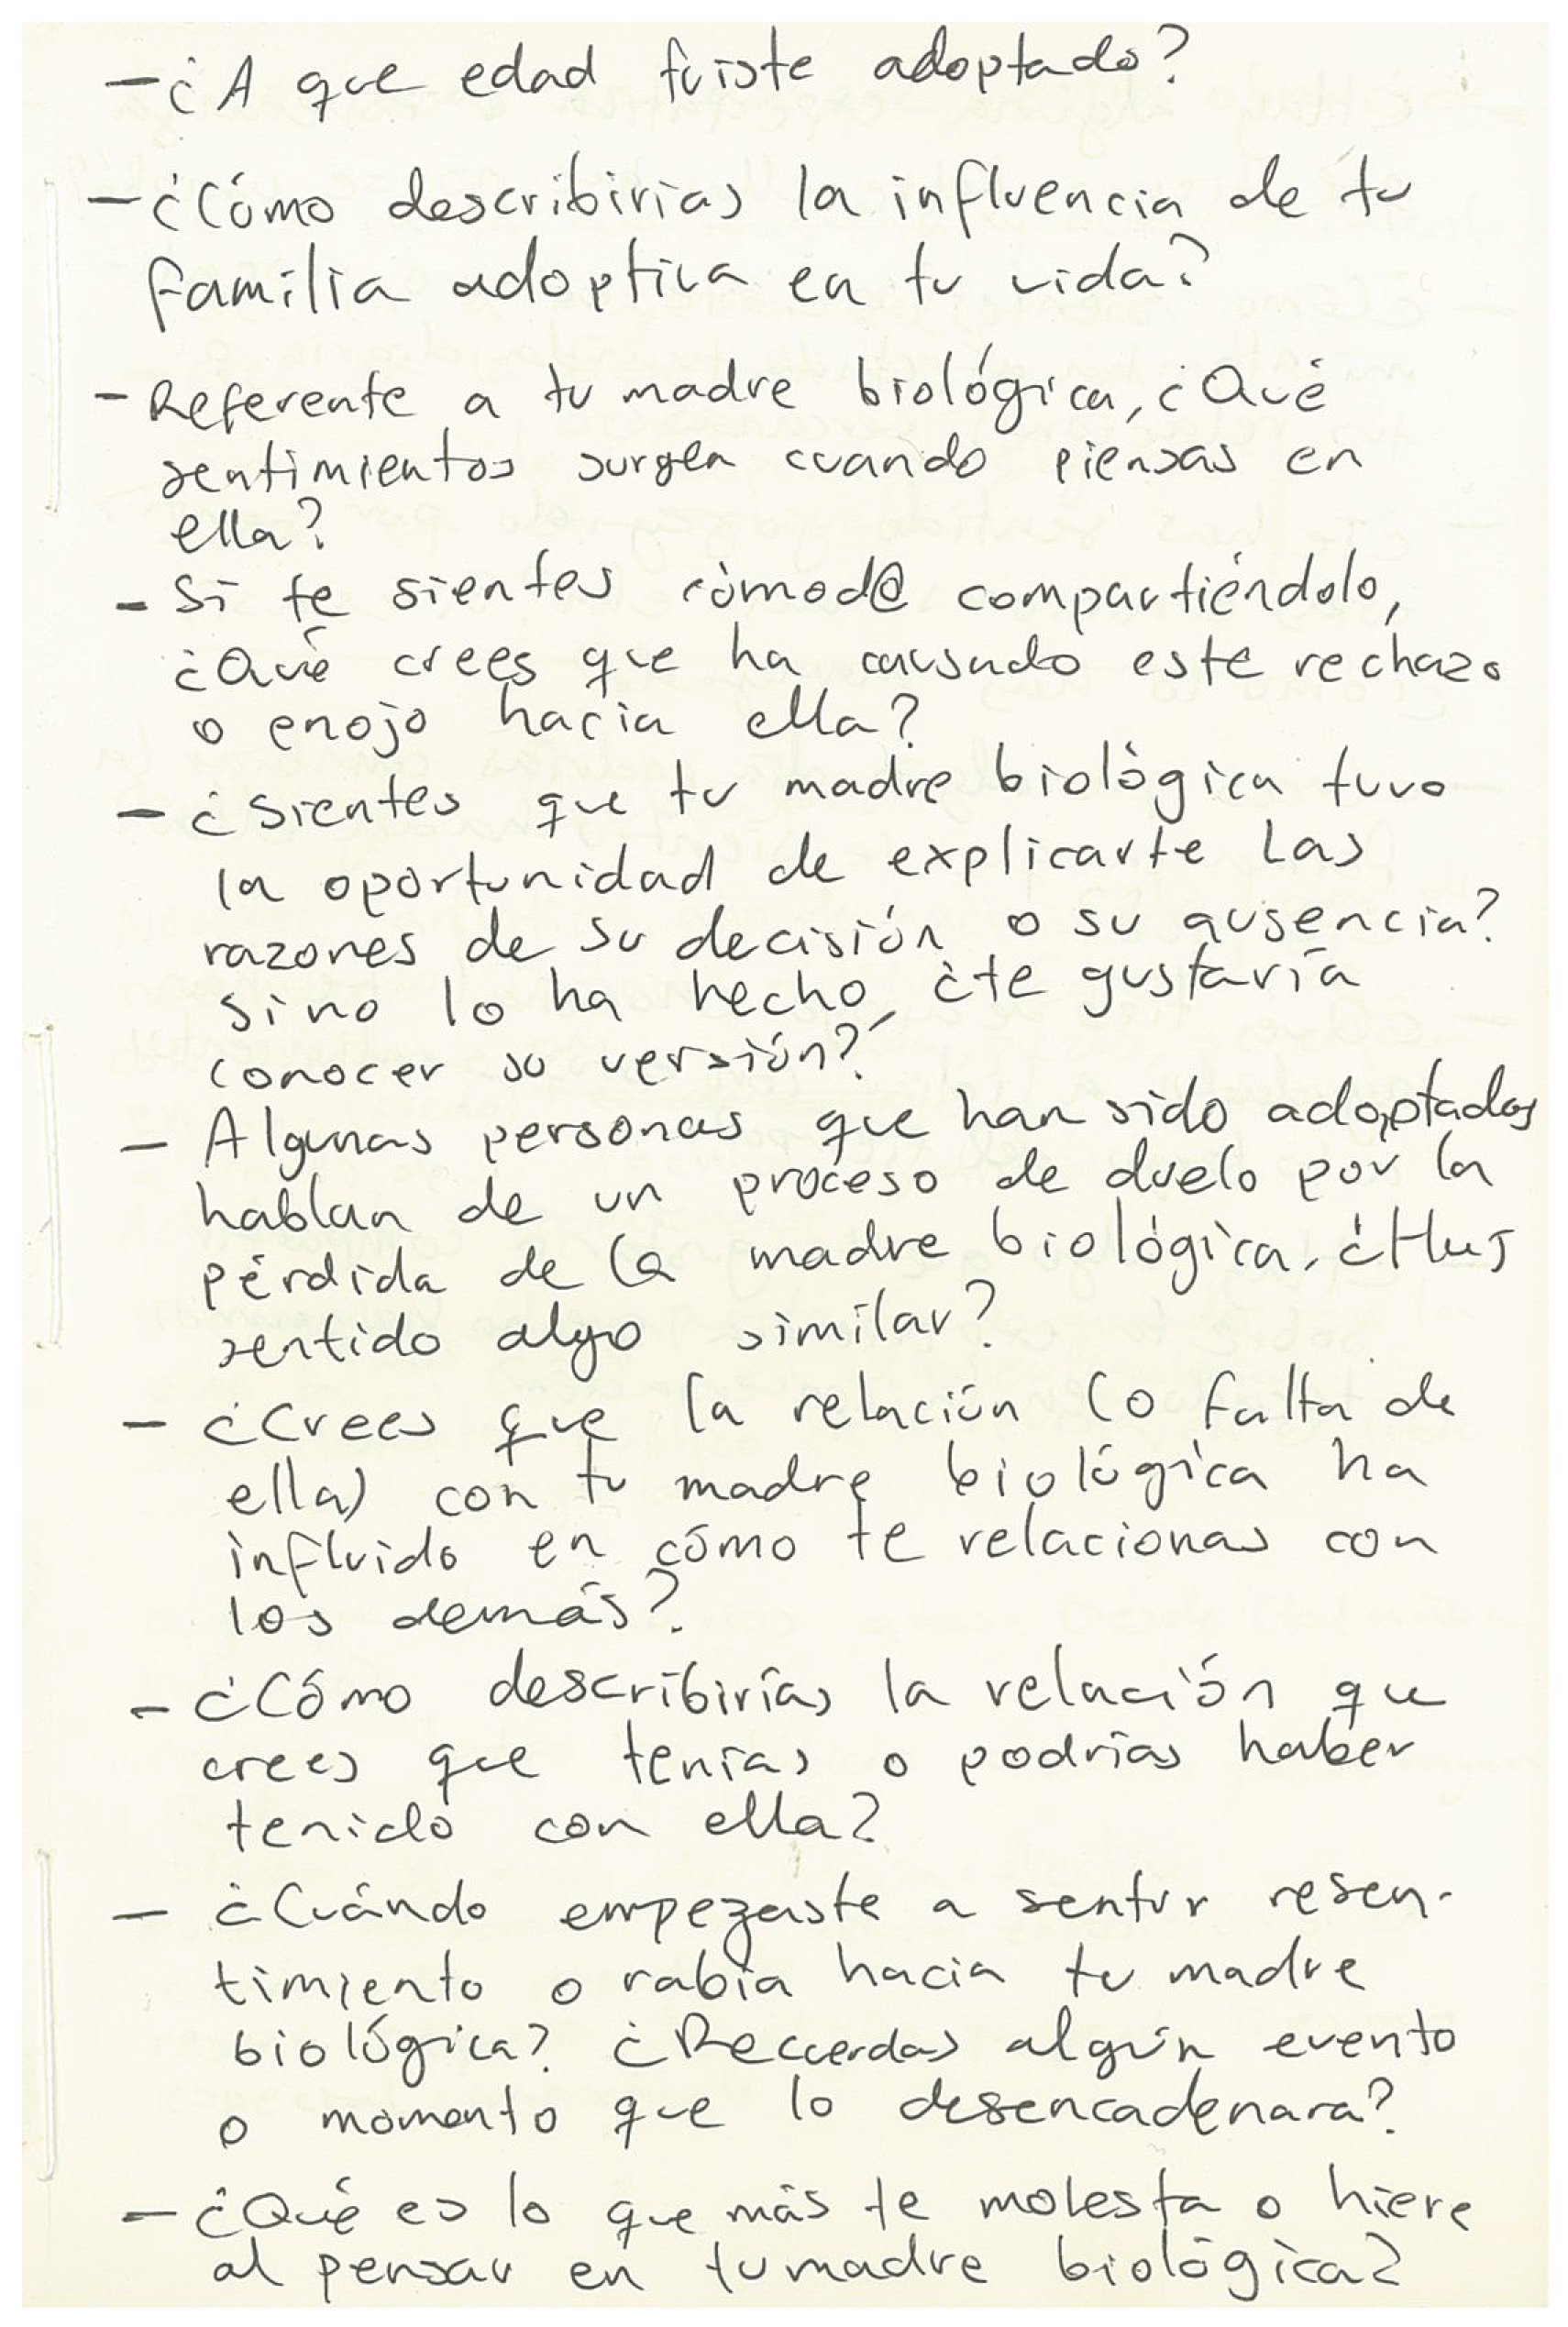 - ¿A que edad fuiste adoptado?
- ¿Cómo describirías la influencia de tu
familia adoptiva en tu vida?
- Referente a tu madre biológica, ¿Qué
sentimientos surgen cuando piensas en
ella?
- Si te sientes cómod@ compartiéndolo,
¿Qué crees que ha causado este rechazo
o enojo hacia ella?
- ¿Sientes que tu madre biológica tuvo
la oportunidad de explicarte las
razones de su decisión o su ausencia?
Si no lo ha hecho, ¿te gustaría
conocer su versión?
- Algunas personas que han sido adoptadas
hablan de un proceso de duelo por la
pérdida de la madre biológica. ¿Has
sentido algo similar?
- ¿Crees que la relación (o falta de
ella) con tu madre biológica ha
influido en cómo te relacionas con
los demás?
- ¿Cómo describirías la relación que
crees que tenías o podrías haber
tenido con ella?
- ¿Cuándo empezaste a sentir resen-
timiento o rabia hacia tu madre
biológica? ¿Recuerdas algún evento
o momento que lo desencadenara?
- ¿Qué es lo que más te molesta o hiere
al pensar en tu madre biológica?